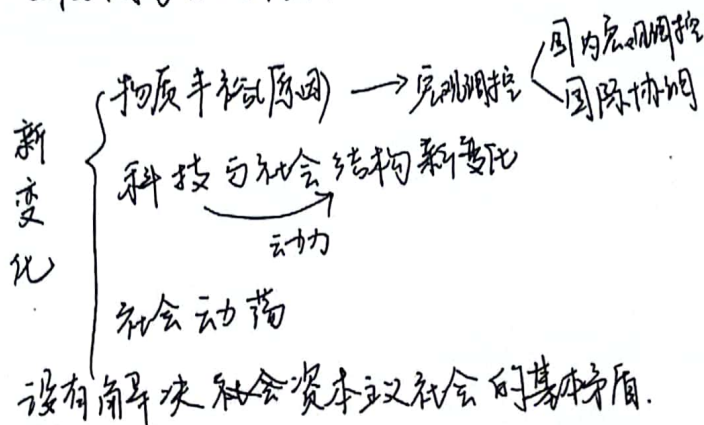 新变化
物质丰裕(原因) → 宏观调控
国内宏观调控
国际协调
科技与社会结构新变化
动力
社会动荡
没有解决社会资本主义社会的基本矛盾.